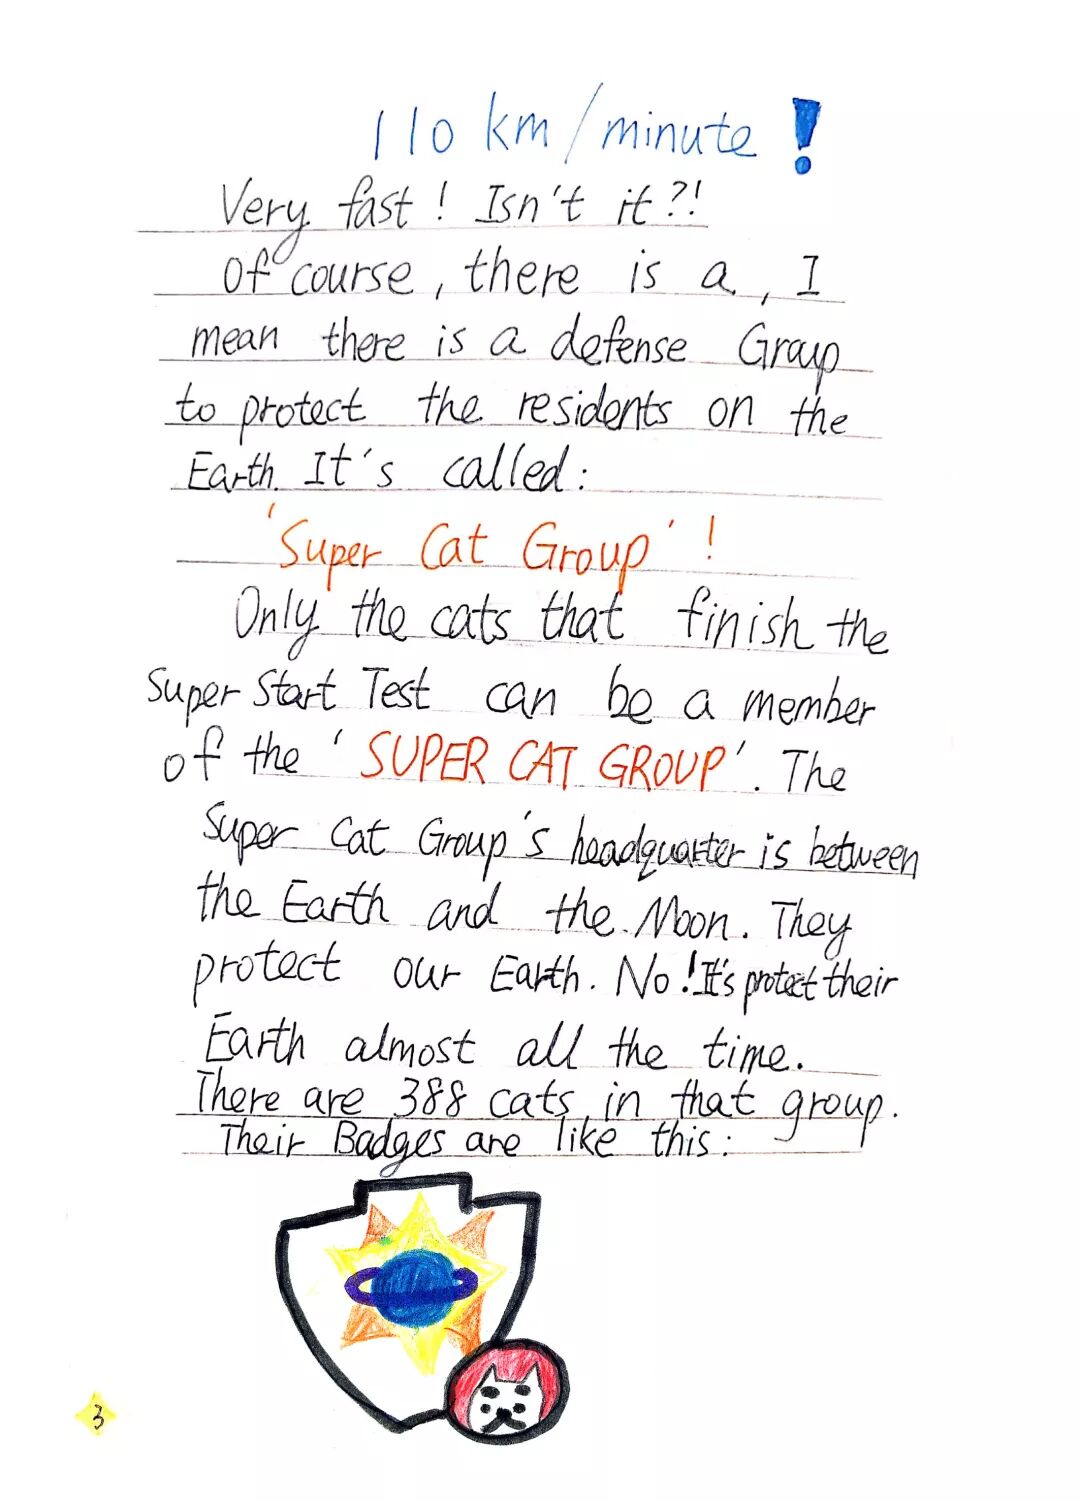 110 km/minute!
Very fast! Isn't it?!
Of course, there is a, I
mean there is a defense Group
to protect the residents on the
Earth. It's called:
'Super Cat Group'!
Only the cats that finish the
Super Start Test can be a member
of the 'SUPER CAT GROUP'. The
Super Cat Group's headquarter is between
the Earth and the Moon. They
protect our Earth. No! It's protect their
Earth almost all the time.
There are 388 cats in that group.
Their Badges are like this:
3